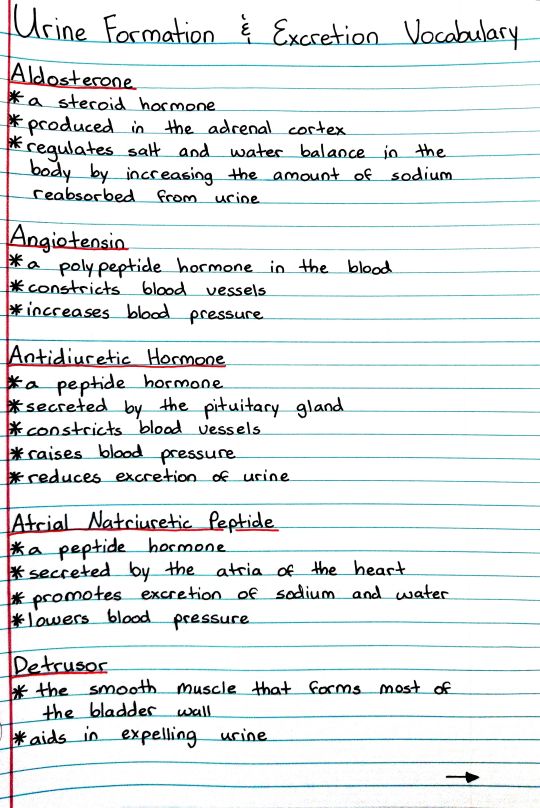 Urine Formation & Excretion Vocabulary
Aldosterone
* a steroid hormone
* produced in the adrenal cortex
* regulates salt and water balance in the
body by increasing the amount of sodium
reabsorbed from urine
Angiotensin
* a polypeptide hormone in the blood
* constricts blood vessels
* increases blood pressure
Antidiuretic Hormone
* a peptide hormone
* secreted by the pituitary gland
* constricts blood vessels
* raises blood pressure
* reduces excretion of urine
Atrial Natriuretic Peptide
* a peptide hormone
* secreted by the atria of the heart
* promotes excretion of sodium and water
* lowers blood pressure
Detrusor
* the smooth muscle that forms most of
the bladder wall
* aids in expelling urine
→